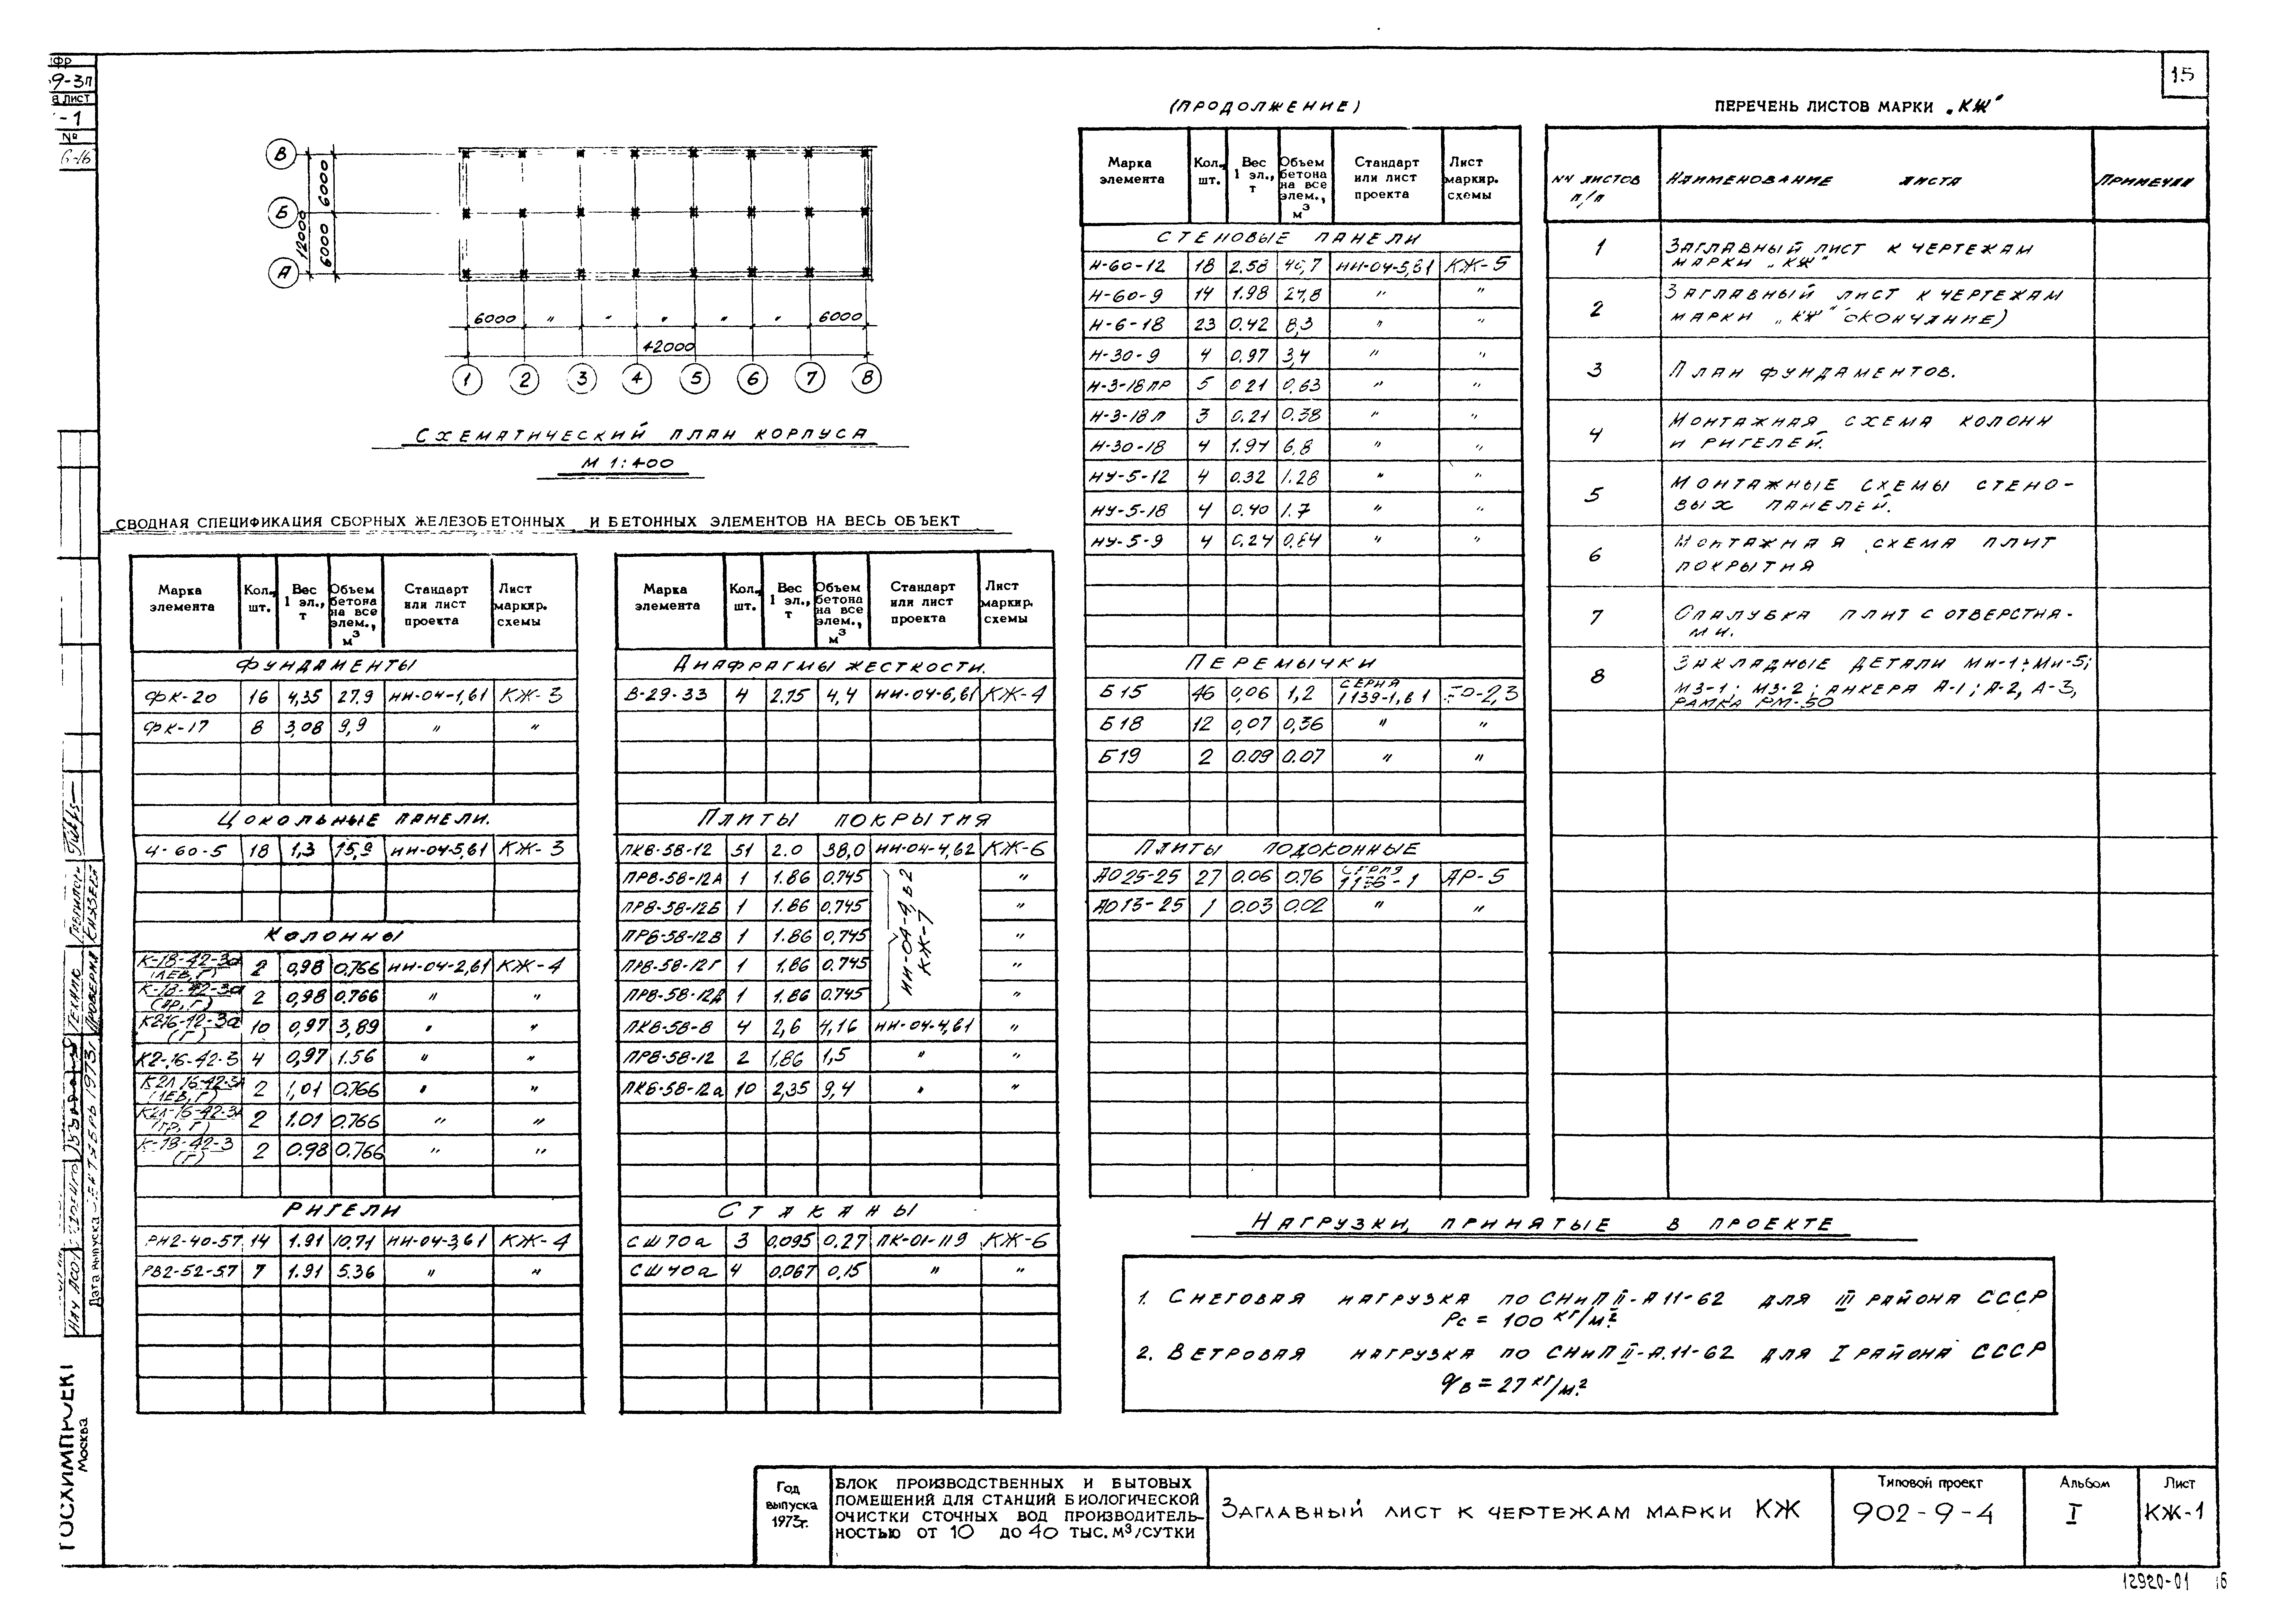 15
В
Б
А
6000
6000
12000
6000 " " " " " 6000
42000
1 2 3 4 5 6 7 8
СХЕМАТИЧЕСКИЙ ПЛАН КОРПУСА
М 1:400
СВОДНАЯ СПЕЦИФИКАЦИЯ СБОРНЫХ ЖЕЛЕЗОБЕТОННЫХ И БЕТОННЫХ ЭЛЕМЕНТОВ НА ВЕСЬ ОБЪЕКТ
Марка элемента | Кол., шт. | Вес 1 эл., т | Объем бетона на все элем., м3 | Стандарт или лист проекта | Лист маркир. схемы
ФУНДАМЕНТЫ
ФК-20 16 4,35 27.9 ИИ-04-1,61 КЖ-3
ФК-17 8 3,08 9,9 " "
ЦОКОЛЬНЫЕ ПАНЕЛИ.
Ц-60-5 18 1,3 15,9 ИИ-04-5,61 КЖ-3
КОЛОННЫ
К-18-42-3а (ЛЕВ, Г) 2 0,98 0.766 ИИ-04-2,61 КЖ-4
К-18-42-3а (ПР, Г) 2 0,98 0.766 " "
К2-16-42-3а (Г) 10 0,97 3,89 " "
К2-16-42-3 4 0,97 1.56 " "
К2Л-16-42-3А (ЛЕВ, Г) 2 1,01 0.766 " "
К2Л-16-42-3А (ПР, Г) 2 1.01 0.766 " "
К-18-42-3 (Г) 2 0.98 0.766 " "
РИГЕЛИ
РН2-40-57 14 1.91 10.71 ИИ-04-3,61 КЖ-4
РВ2-52-57 7 1.91 5.36 " "
Марка элемента | Кол., шт. | Вес 1 эл., т | Объем бетона на все элем., м3 | Стандарт или лист проекта | Лист маркир. схемы
ДИАФРАГМЫ ЖЕСТКОСТИ.
В-29-33 4 2.75 4,4 ИИ-04-6,61 КЖ-4
ПЛИТЫ ПОКРЫТИЯ
ПК8-58-12 51 2.0 38,0 ИИ-04-4,62 КЖ-6
ПР8-58-12А 1 1.86 0.745 "
ПР8-58-12Б 1 1.86 0,745 "
ПР8-58-12В 1 1.86 0,745 "
ПР8-58-12Г 1 1.86 0.745 "
ПР8-58-12Д 1 1.86 0.745 "
ИИ-04-4, в2
КЖ-7
ПК8-58-8 4 2,6 4,16 ИИ-04-4,61 "
ПР8-58-12 2 1,86 1,5 " "
ПК6-58-12а 10 2,35 9,4 " "
СТАКАНЫ
СШ70а 3 0,095 0.27 ПК-01-119 КЖ-6
СШ40а 4 0.067 0,15 " "
(ПРОДОЛЖЕНИЕ)
Марка элемента | Кол., шт. | Вес 1 эл., т | Объем бетона на все элем., м3 | Стандарт или лист проекта | Лист маркир. схемы
СТЕНОВЫЕ ПАНЕЛИ
Н-60-12 18 2.58 ИИ-04-5,61 КЖ-5
Н-60-9 14 1.98 " "
Н-6-18 23 0.42 8,3 " "
Н-30-9 4 0.97 3,4 " "
Н-3-18ПР 5 0.21 0.63 " "
Н-3-18Л 3 0.21 0.38 " "
Н-30-18 4 1.94 6,8 " "
НУ-5-12 4 0.32 1.28 " "
НУ-5-18 4 0.40 1.7 " "
НУ-5-9 4 0,24 " "
ПЕРЕМЫЧКИ
Б15 46 0,06 1,2 СЕРИЯ 1139-1, в 1
Б18 12 0,07 0,36 " "
Б19 2 0.09 0.07 " "
ПЛИТЫ ПОДОКОННЫЕ
ДО25-25 27 0.06 0.76 СЕРИЯ АР-5
ДО13-25 1 0.03 0.02 " "
НАГРУЗКИ, ПРИНЯТЫЕ В ПРОЕКТЕ
1. СНЕГОВАЯ НАГРУЗКА ПО СНиП II-А 11-62 ДЛЯ III РАЙОНА СССР
Рс = 100 кг/м2
2. ВЕТРОВАЯ НАГРУЗКА ПО СНиП II-А.11-62 ДЛЯ I РАЙОНА СССР
qв = 27 кг/м2
ПЕРЕЧЕНЬ ЛИСТОВ МАРКИ „КЖ"
NN ЛИСТОВ П/П | НАИМЕНОВАНИЕ ЛИСТА | ПРИМЕЧАН
1 ЗАГЛАВНЫЙ ЛИСТ К ЧЕРТЕЖАМ
МАРКИ „КЖ"
2 ЗАГЛАВНЫЙ ЛИСТ К ЧЕРТЕЖАМ
МАРКИ „КЖ" ОКОНЧАНИЕ)
3 ПЛАН ФУНДАМЕНТОВ.
4 МОНТАЖНАЯ СХЕМА КОЛОНН
И РИГЕЛЕЙ.
5 МОНТАЖНЫЕ СХЕМЫ СТЕНО-
ВЫХ ПАНЕЛЕЙ.
6 МОНТАЖНАЯ СХЕМА ПЛИТ
ПОКРЫТИЯ
7 ОПАЛУБКА ПЛИТ С ОТВЕРСТИЯ-
МИ.
8 ЗАКЛАДНЫЕ ДЕТАЛИ МН-1÷МН-5;
МЗ-1; МЗ-2; АНКЕРА А-1; А-2, А-3,
РАМКА РМ-50
Год выпуска 1973г.
БЛОК ПРОИЗВОДСТВЕННЫХ И БЫТОВЫХ
ПОМЕЩЕНИЙ ДЛЯ СТАНЦИЙ БИОЛОГИЧЕСКОЙ
ОЧИСТКИ СТОЧНЫХ ВОД ПРОИЗВОДИТЕЛЬ-
НОСТЬЮ ОТ 10 ДО 40 ТЫС. М3/СУТКИ
ЗАГЛАВНЫЙ ЛИСТ К ЧЕРТЕЖАМ МАРКИ КЖ
Типовой проект
902-9-4
Альбом
I
Лист
КЖ-1
12920-01 16
ГОСХИМПРОЕКТ
Москва
Дата выпуска
1973
ТЕХНИК
ПРОВЕРИЛ